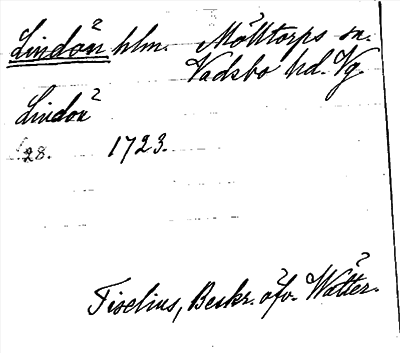 Lindön hlm. Mölltorps sn.
Vadsbo hd. Vg.
Lindön
s. 28. 1723.
Tiselius, Beskr. öfv. Wätter.